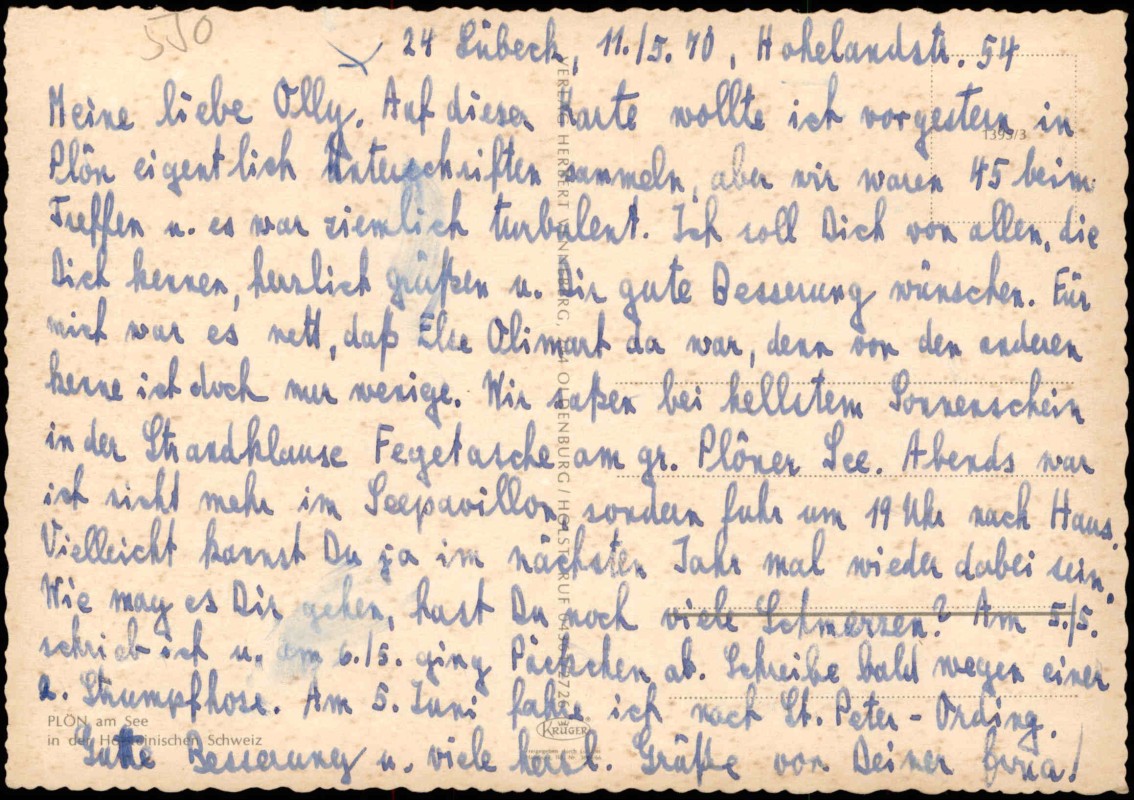 530
24 Lübeck, 11./5. 70, Hohelandstr. 54
Meine liebe Olly. Auf dieser Karte wollte ich vorgestern in
1395/3
Plön eigentlich Unterschriften sammeln, aber wir waren 45 beim
Treffen u. es war ziemlich turbulent. Ich soll Dich von allen, die
Dich kennen, herzlich grüßen u. Dir gute Besserung wünschen. Für
mich war es nett, daß Else Olimart da war, denn von den anderen
kenne ich doch nur wenige. Wir saßen bei hellstem Sonnenschein
in der Strandklause Fegetasche am gr. Plöner See. Abends war
ich nicht mehr im Seepavillon, sondern fuhr um 19 Uhr nach Haus.
Vielleicht kannst Du ja im nächsten Jahr mal wieder dabei sein.
Wie mag es Dir gehen, hast Du noch viele Schmerzen? Am 5./5.
schrieb ich u. am 6./5. ging Päckchen ab. Schreibe bald wegen einer
2. Strumpfhose. Am 5. Juni fahre ich nach St. Peter-Ording.
Gute Besserung u. viele herzl. Grüße von Deiner
PLÖN am See
in der Holsteinischen Schweiz
KRÜGER
VERLAG HERBERT OLDENBURG/HOLST. RUF